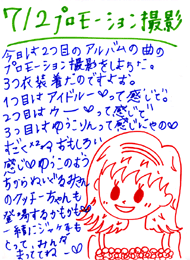 7/2プロモーション撮影
今日は2つ目のアルバムの曲の
プロモーション撮影をしちゃった。
3つ衣装着たのですよぉ。
1つ目はアイドルー♡って感じで。
2つ目はウー♡って感じで
3つ目はゆうこりんって感じにゃの♡
おもしろい
感じ♡ゆうこのよう
クッキーちゃんも
登場するかもかも♡
一緒に
とって、みんな
まっててねー♡